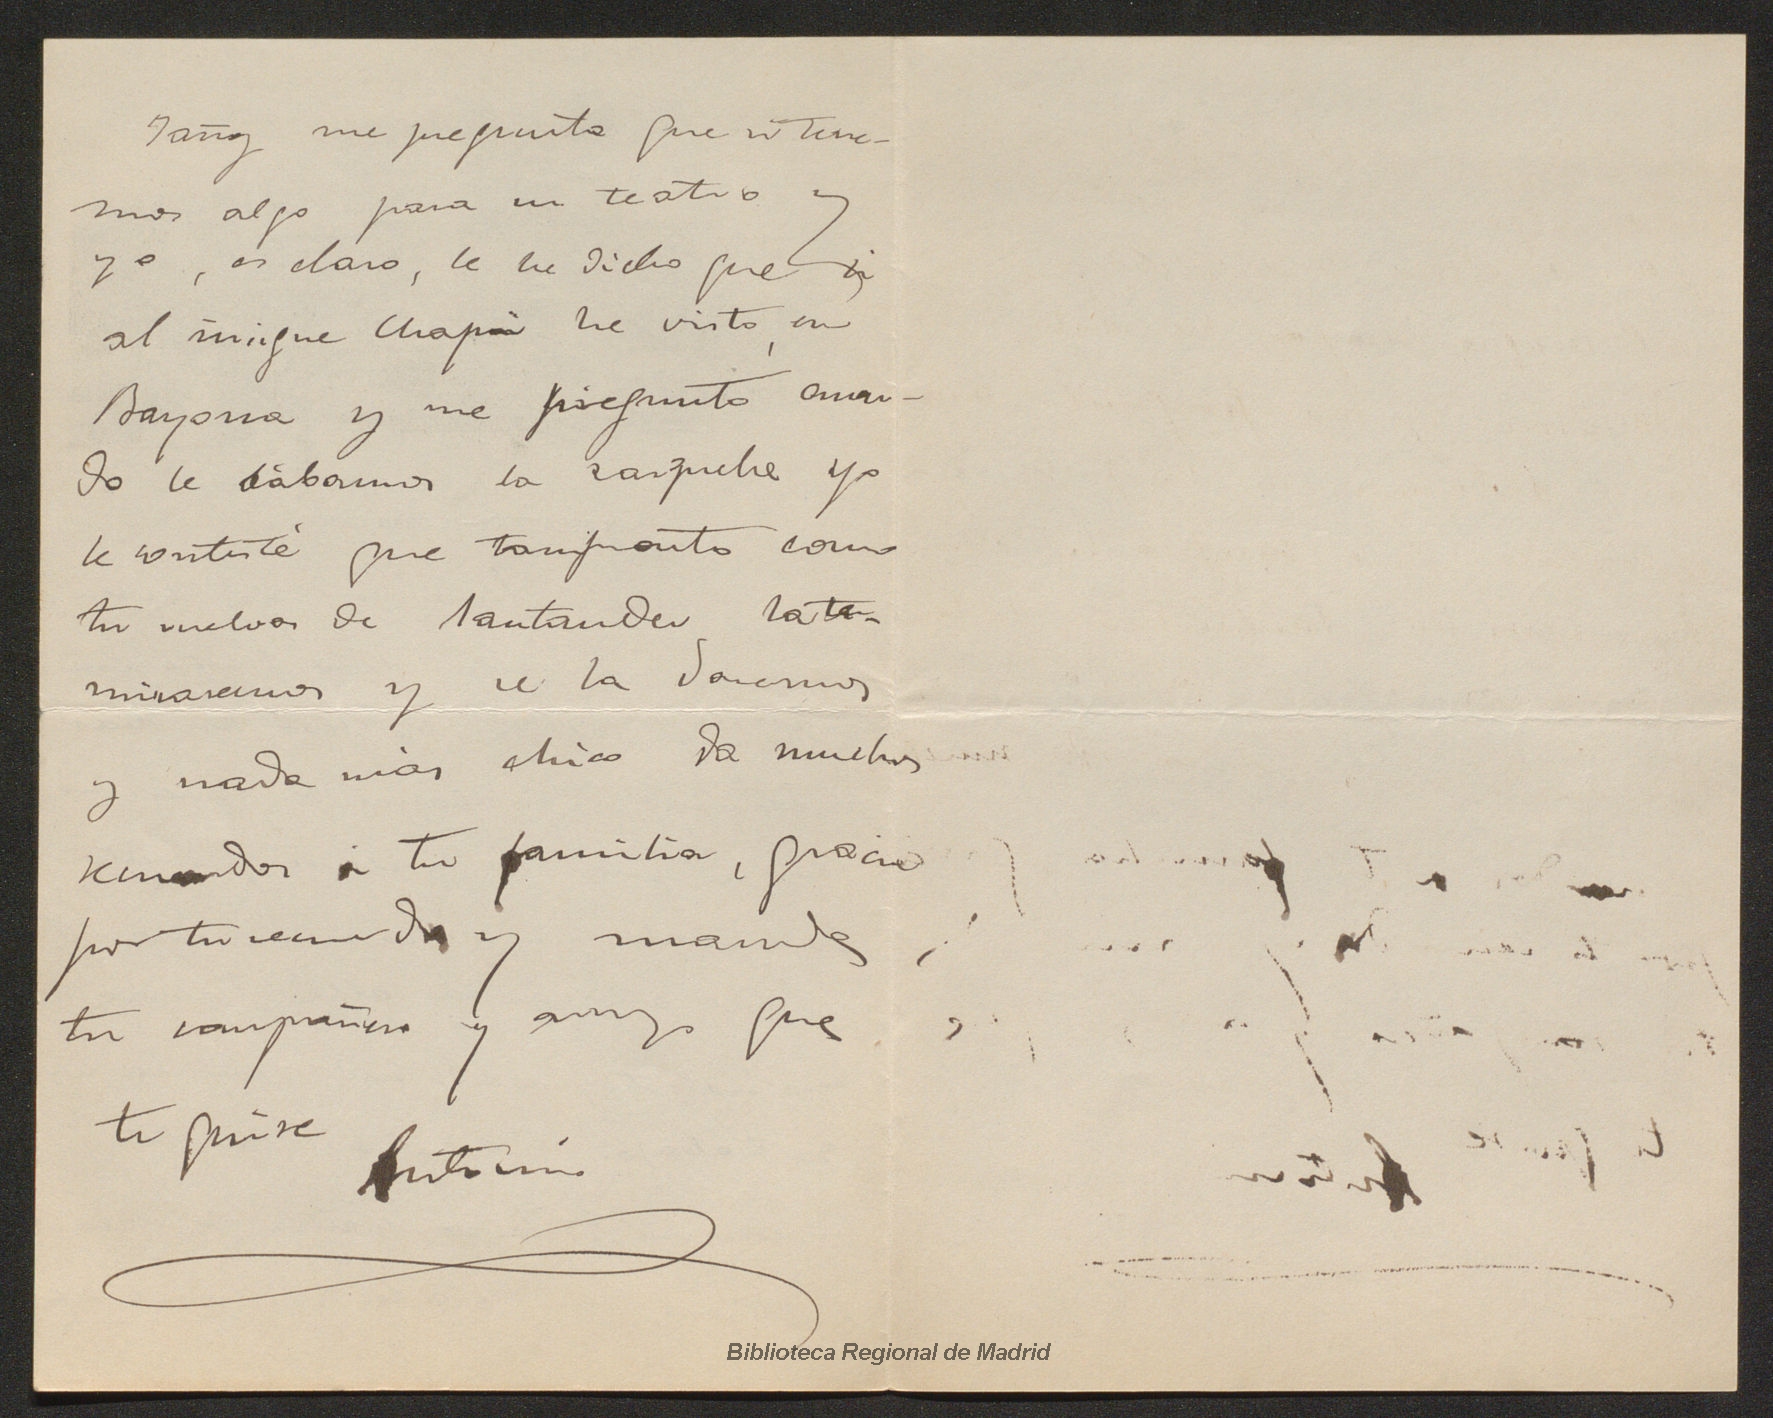 me pregunta que si tene-
mos algo para su teatro y
yo, es claro, le he dicho que si
al insigne Chapí he visto, en
Bayona y me preguntó cuan-
do le dabamos la zarzuela yo
le contesté que tan pronto como
tu vuelvas de Santander la ter-
minaremos y se la daremos
y nada más chico da muchos
recuerdos á tu familia, gracias
por tu recuerdo y manda
tu compañero y amigo que
te quiere
Antonio
Biblioteca Regional de Madrid